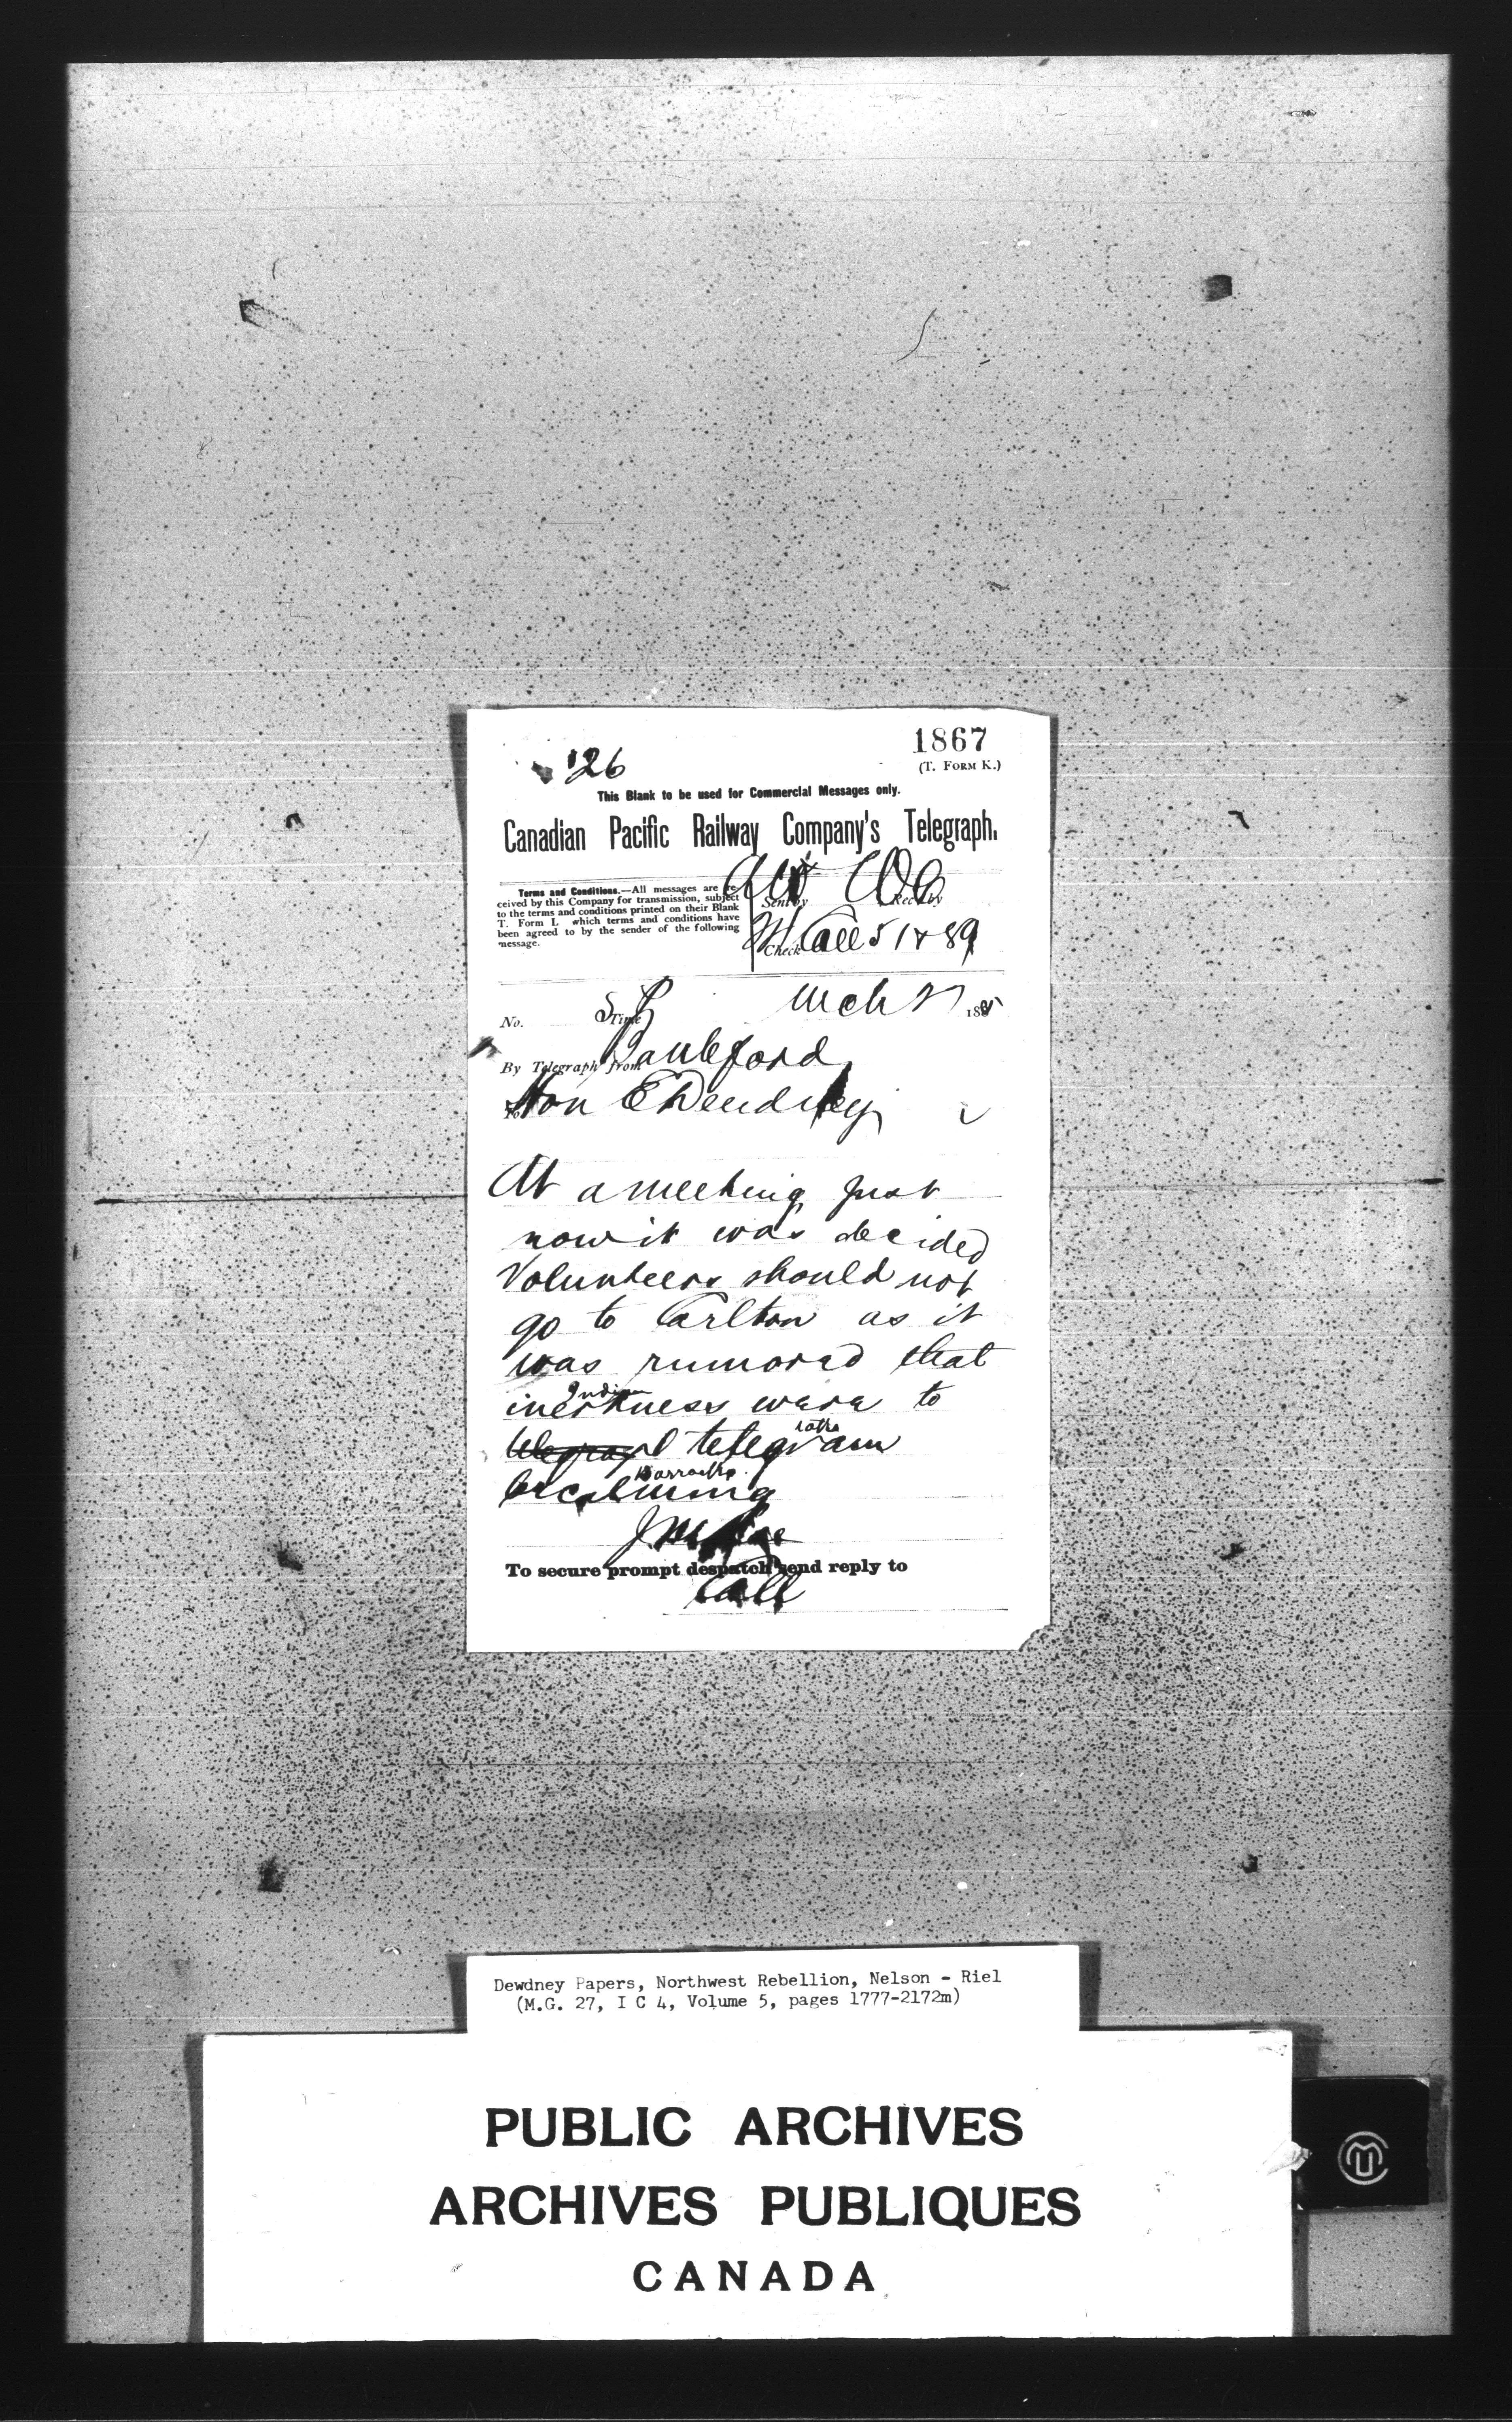 126
1867
(T. FORM K.)
This Blank to be used for Commercial Messages only.
Canadian Pacific Railway Company's Telegraph.
Terms and Conditions.—All messages are re-
ceived by this Company for transmission, subject
to the terms and conditions printed on their Blank
T. Form I. which terms and conditions have
been agreed to by the sender of the following
message.
Sent by
Rec'd by
Check
Call 51 & 89
No.
Time
Mch 27 1885
By Telegraph from Battleford
To Hon E Dewdney
At a meeting just
now it was decided
Volunteers should not
go to Carlton as it
was rumored that
Indian
were to
telegram
Barracks
J M Rae
To secure prompt despatch send reply to
Call
Dewdney Papers, Northwest Rebellion, Nelson - Riel
(M.G. 27, I C 4, Volume 5, pages 1777-2172m)
PUBLIC ARCHIVES
ARCHIVES PUBLIQUES
CANADA